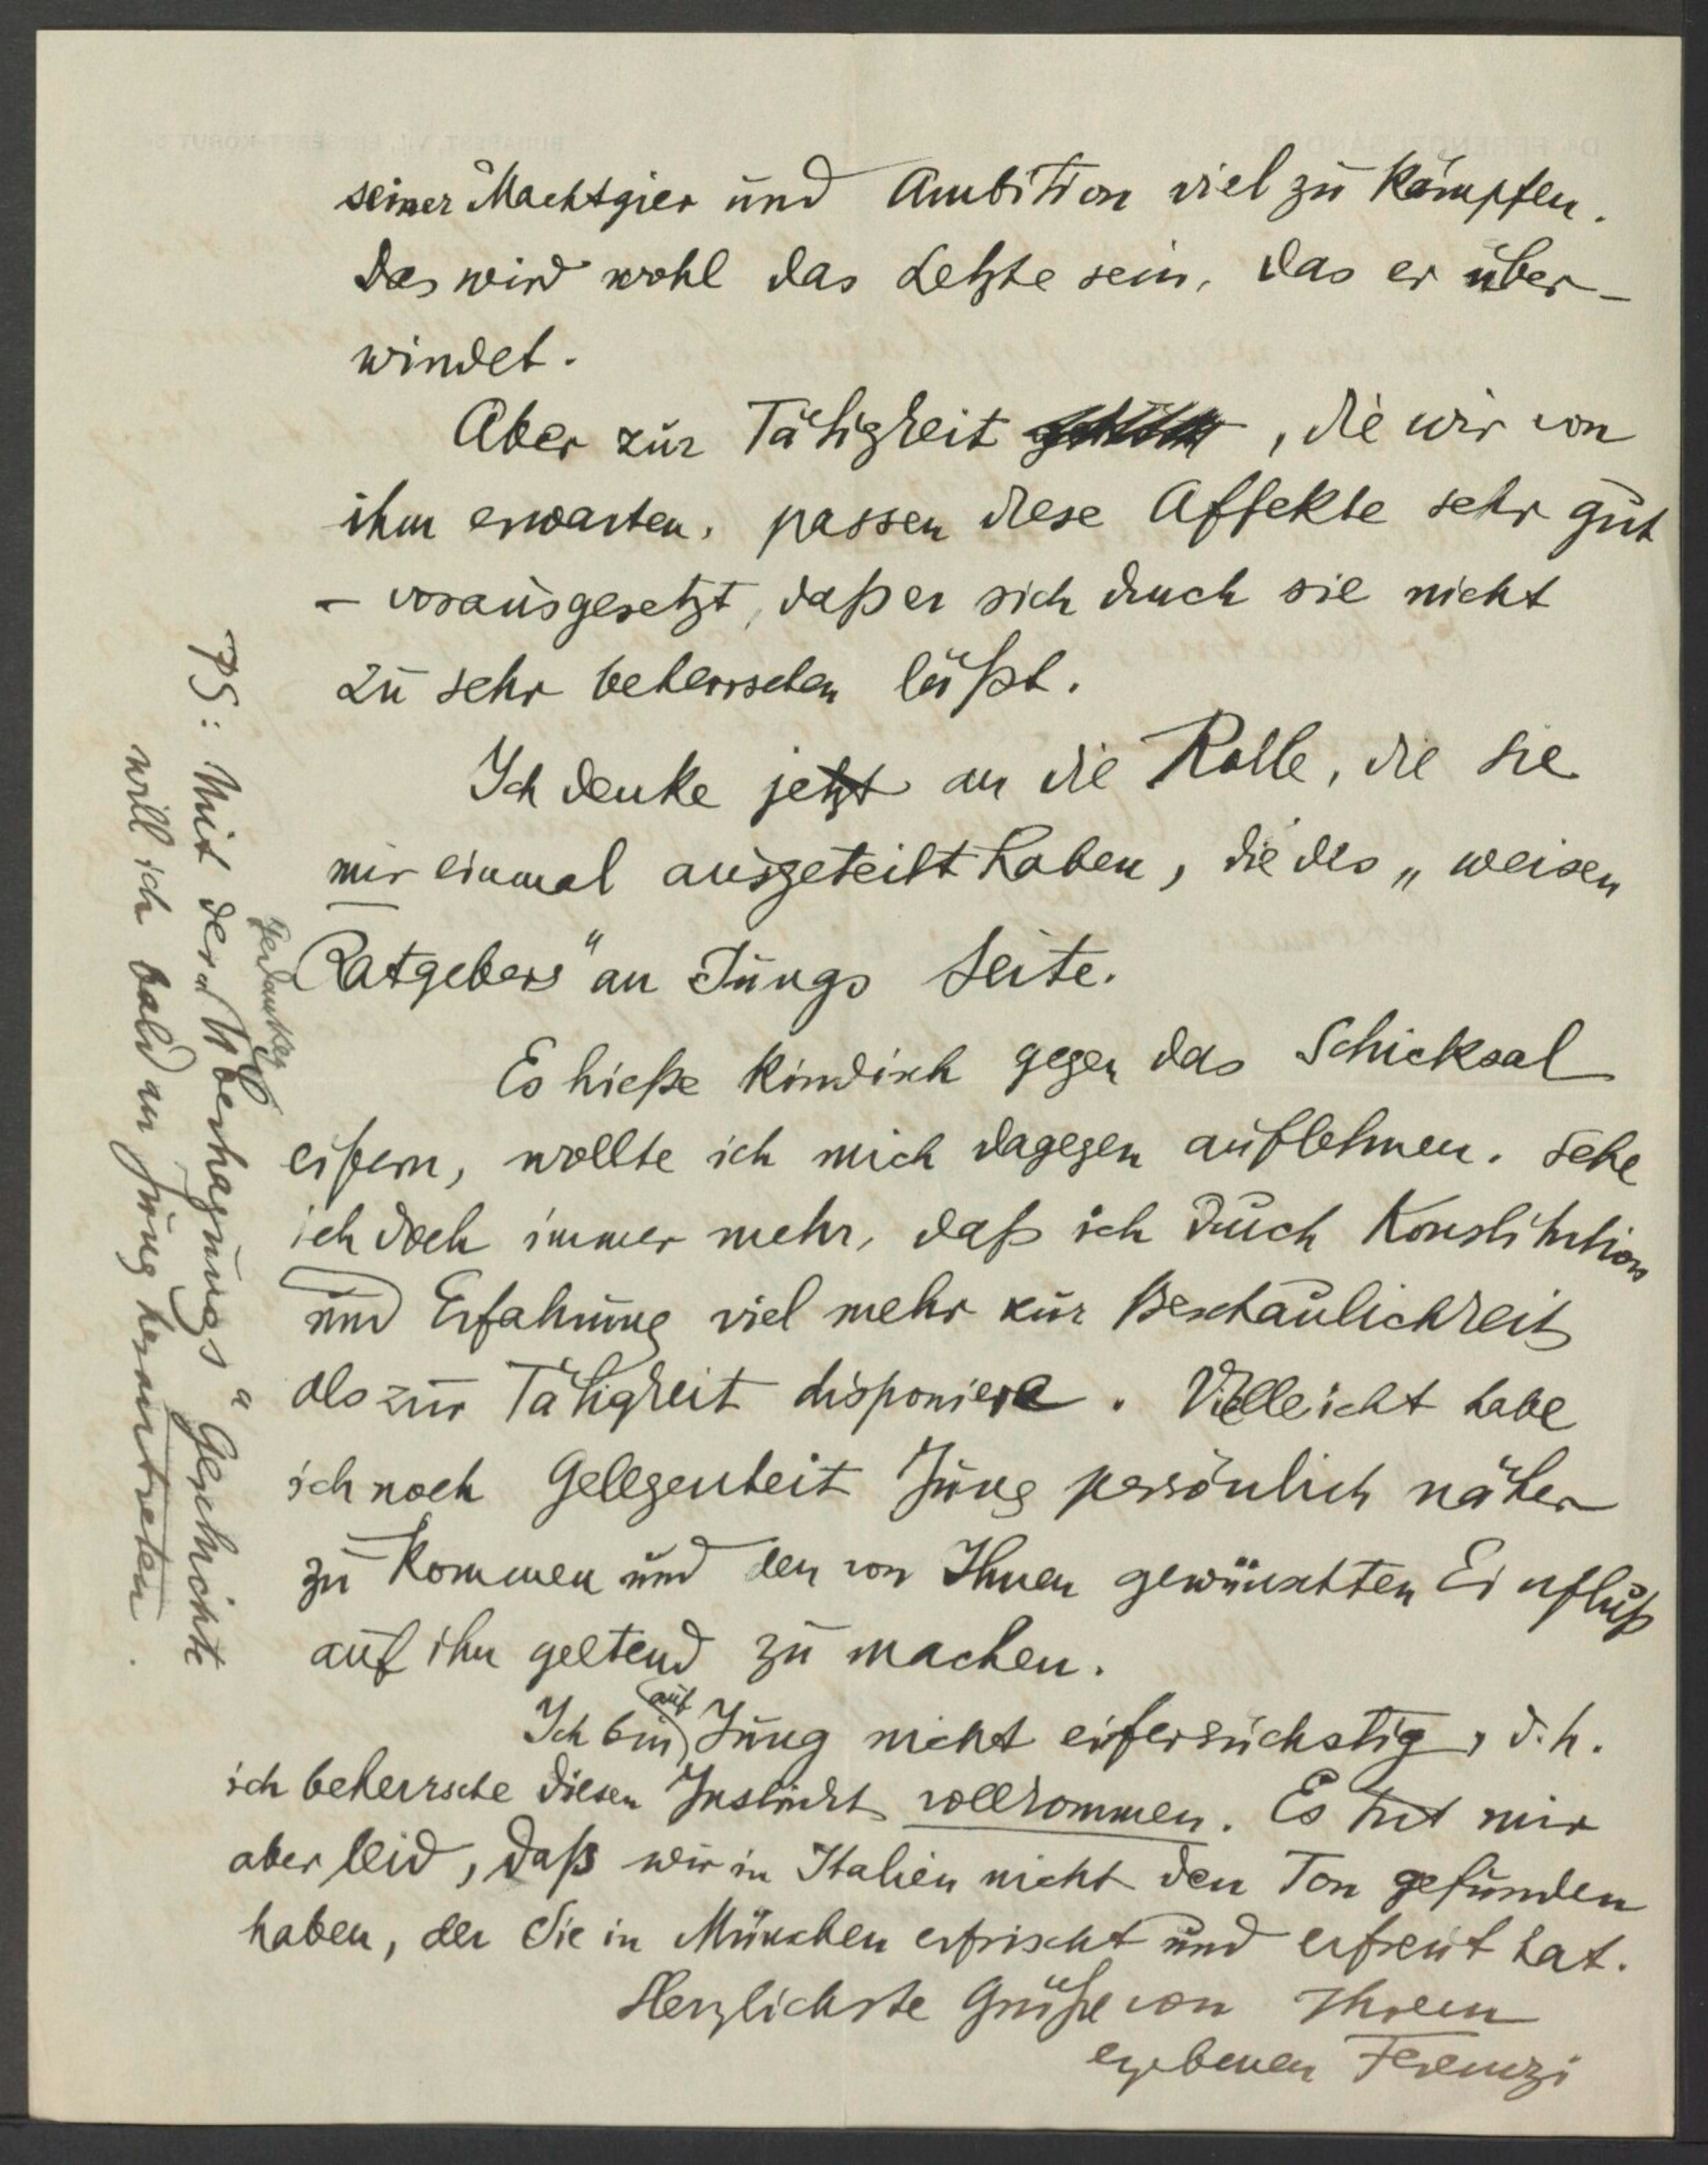 seiner Machtgier und Ambition viel zu kämpfen.
Das wird wohl das Letzte sein, das er über-
windet.
Aber zur Tätigkeit , die wir von
ihm erwarten, passen diese Affekte sehr gut
– vorausgesetzt, daß er sich durch sie nicht
zu sehr beherrschen läßt.
Ich denke jetzt an die Rolle, die Sie
mir einmal ausgeteilt haben, die des „weisen
Ratgebers" an Jungs Seite.
Es hieße kindisch gegen das Schicksal
eifern, wollte ich mich dagegen auflehnen. Sehe
ich doch immer mehr, daß ich durch Konstitution
und Erfahrung viel mehr zur Beschaulichkeit
als zur Tätigkeit disponiere. Vielleicht habe
ich noch Gelegenheit Jung persönlich näher
zu kommen und den von Ihnen gewünschten Einfluß
auf ihn geltend zu machen.
Ich bin auf Jung nicht eifersüchstig, d.h.
ich beherrsche diesen Instinkt vollkommen. Es tut mir
aber leid, daß wir in Italien nicht den Ton gefunden
haben, der Sie in München erfrischt und erfreut hat.
Herzlichste Grüße von Ihrem
ergebenen Ferenczi
PS: Mit der „Gedankenübertragungs" Geschichte
will ich bald an Jung herantreten.